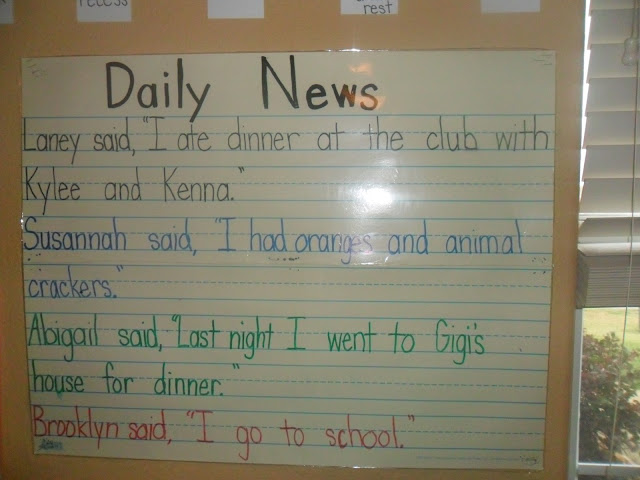 recess
rest
Daily News
Laney said, "I ate dinner at the club with
Kylee and Kenna."
Susannah said, "I had oranges and animal
crackers."
Abigail said, "Last night I went to Gigi's
house for dinner."
Brooklyn said, "I go to school."